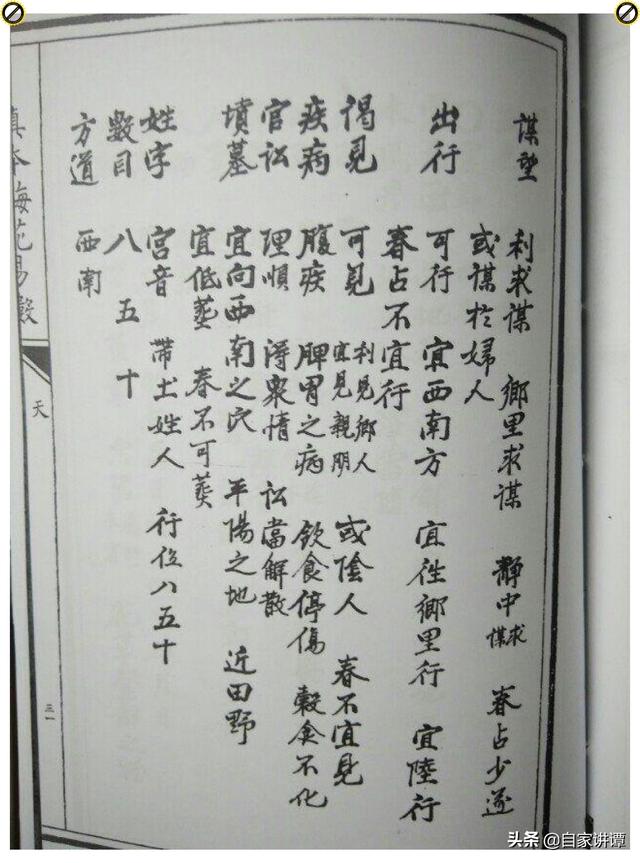 謀望　利求謀　鄉里求謀　靜中求謀　春占少遂
或謀於婦人
出行　可行　宜西南方　宜往鄉里行　宜陸行
春占不宜行
謁見　可見　利見鄉人　宜見親朋　或陰人　春不宜見
疾病　腹疾　脾胃之病　飲食停傷　穀食不化
官訟　理順　得眾情　訟當解散
墳墓　宜向西南之穴　平陽之地　近田野
宜低葬　春不可葬
姓字　宮音　帶土姓人　行位八五十
數目　八　五　十
方道　西南
真本梅花易數
天
三一
头条 @自家讲谭